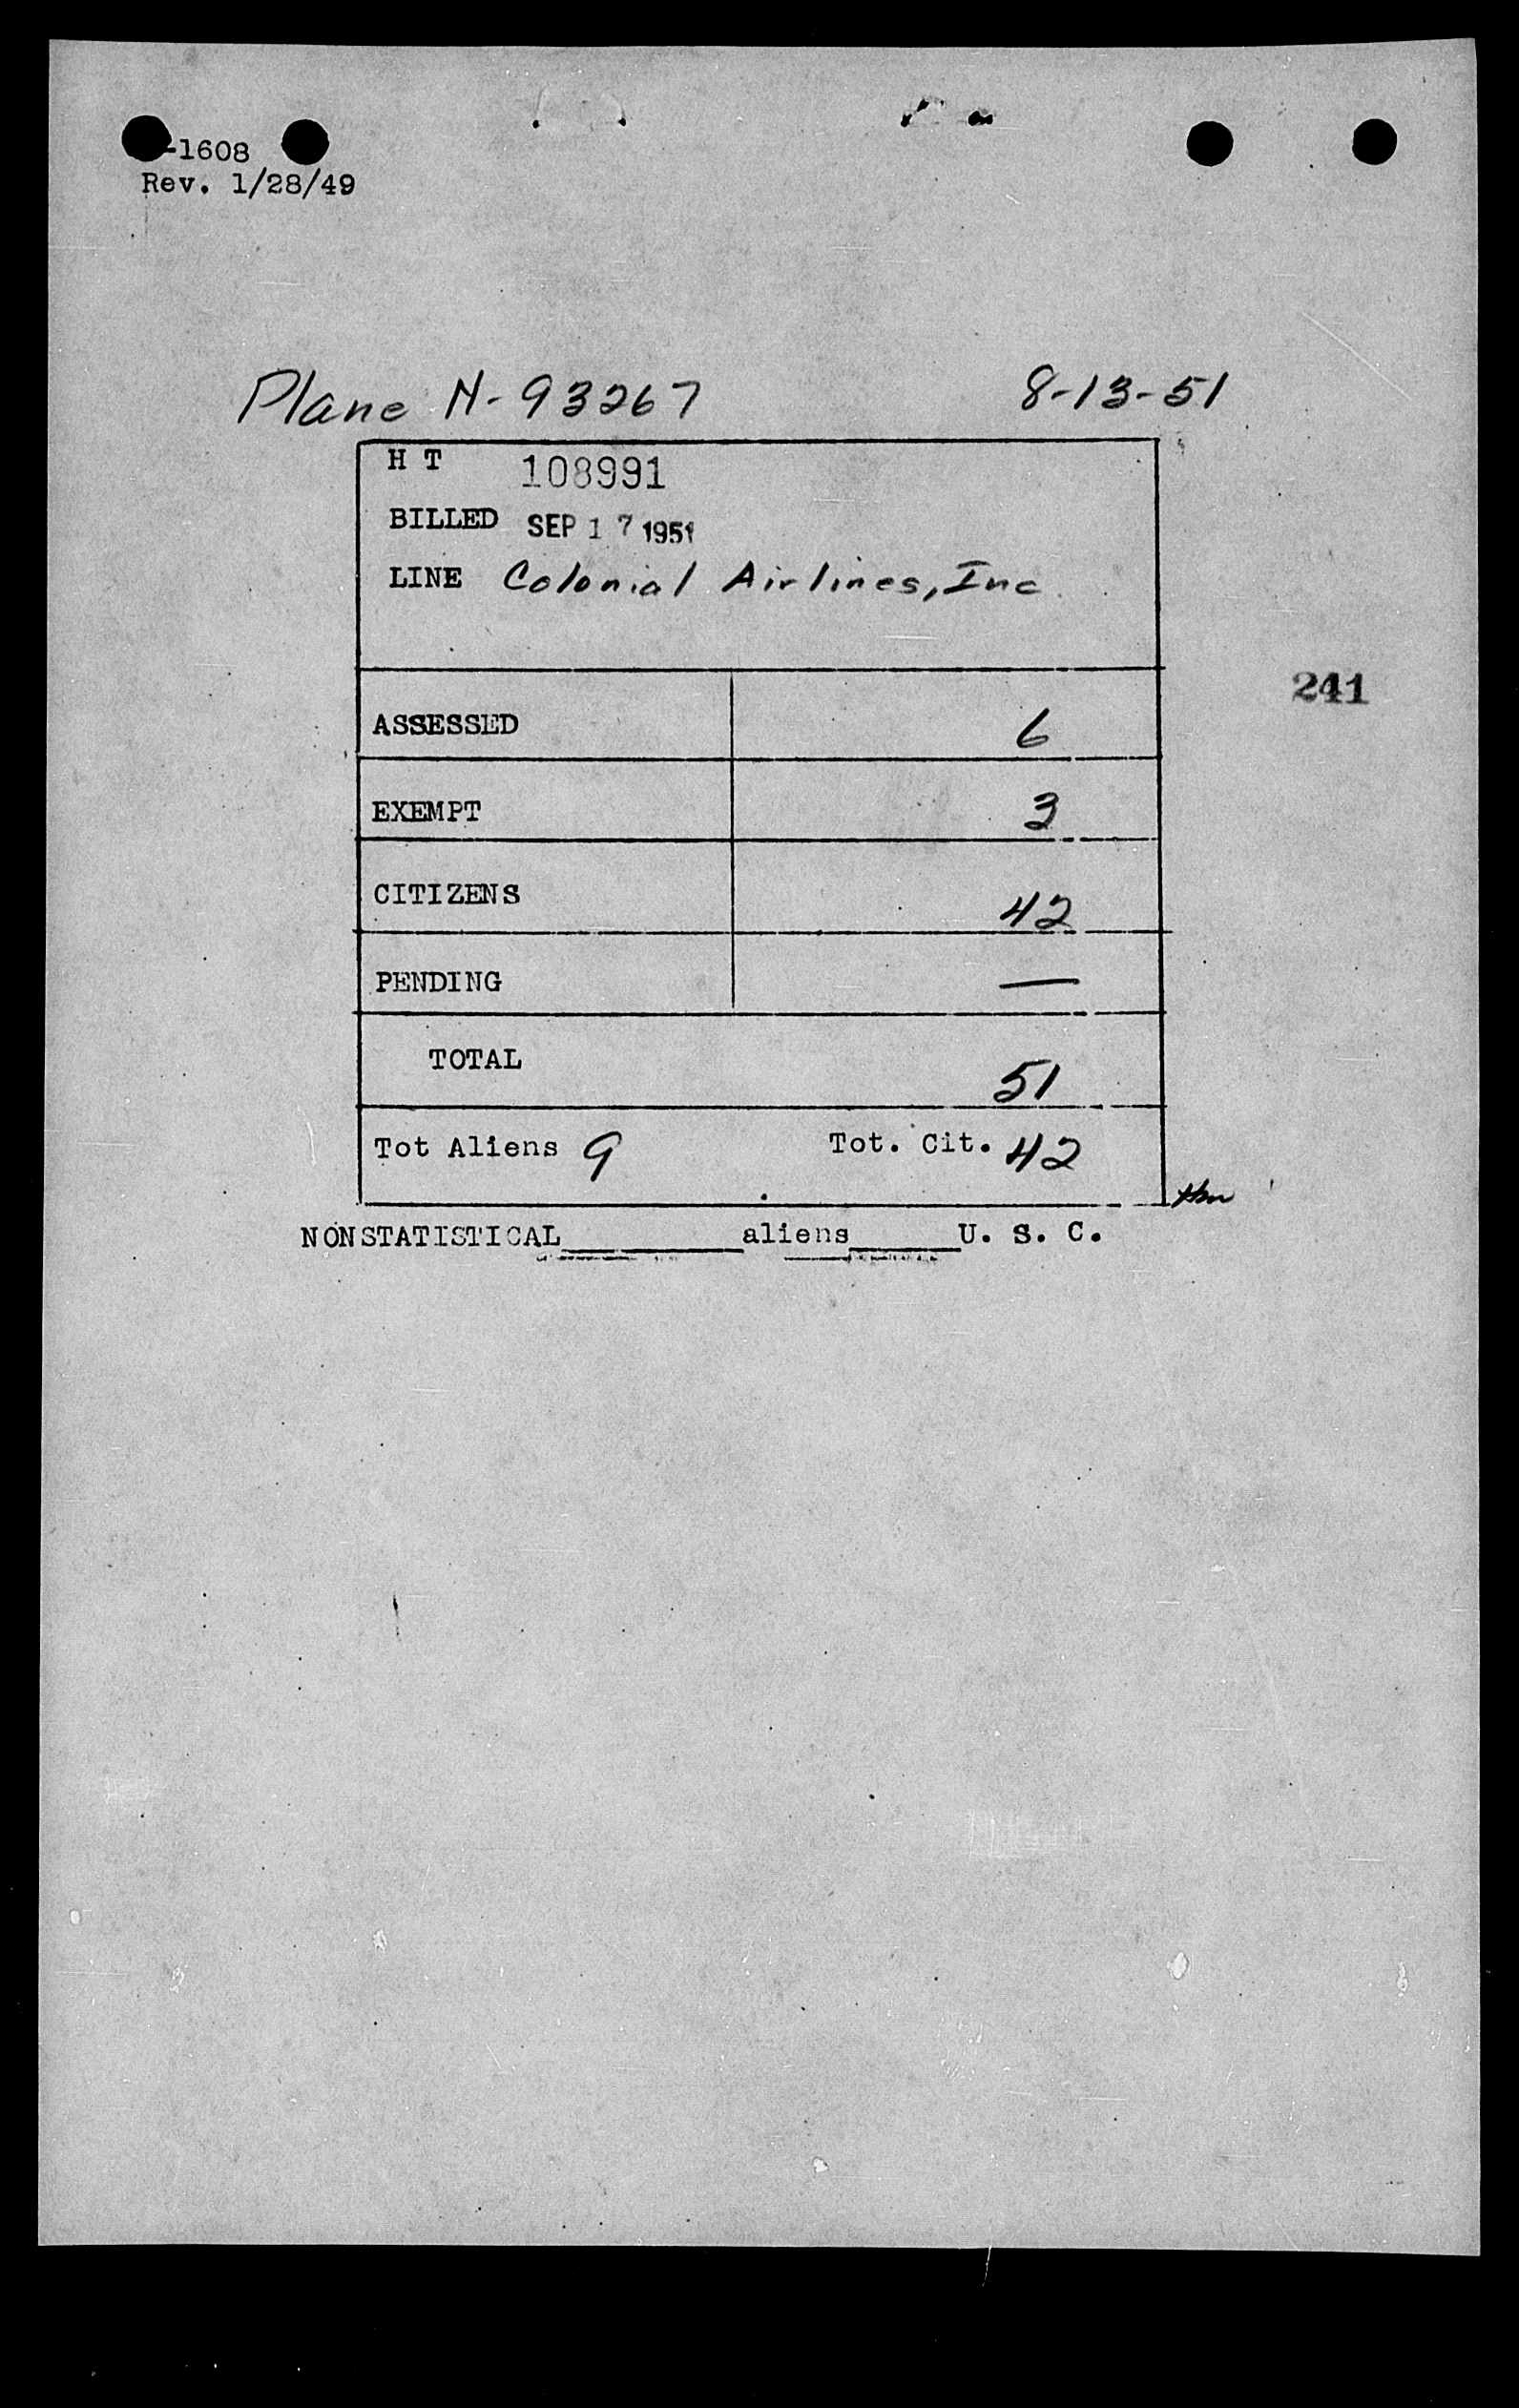 -1608
Rev. 1/28/49
Plane N-93267 8-13-51
H T 108991
BILLED SEP 17 1951
LINE Colonial Airlines, Inc.
241
ASSESSED 6
EXEMPT 3
CITIZENS 42
PENDING —
TOTAL 51
Tot Aliens 9 Tot. Cit. 42
NONSTATISTICAL________aliens_____U. S. C.